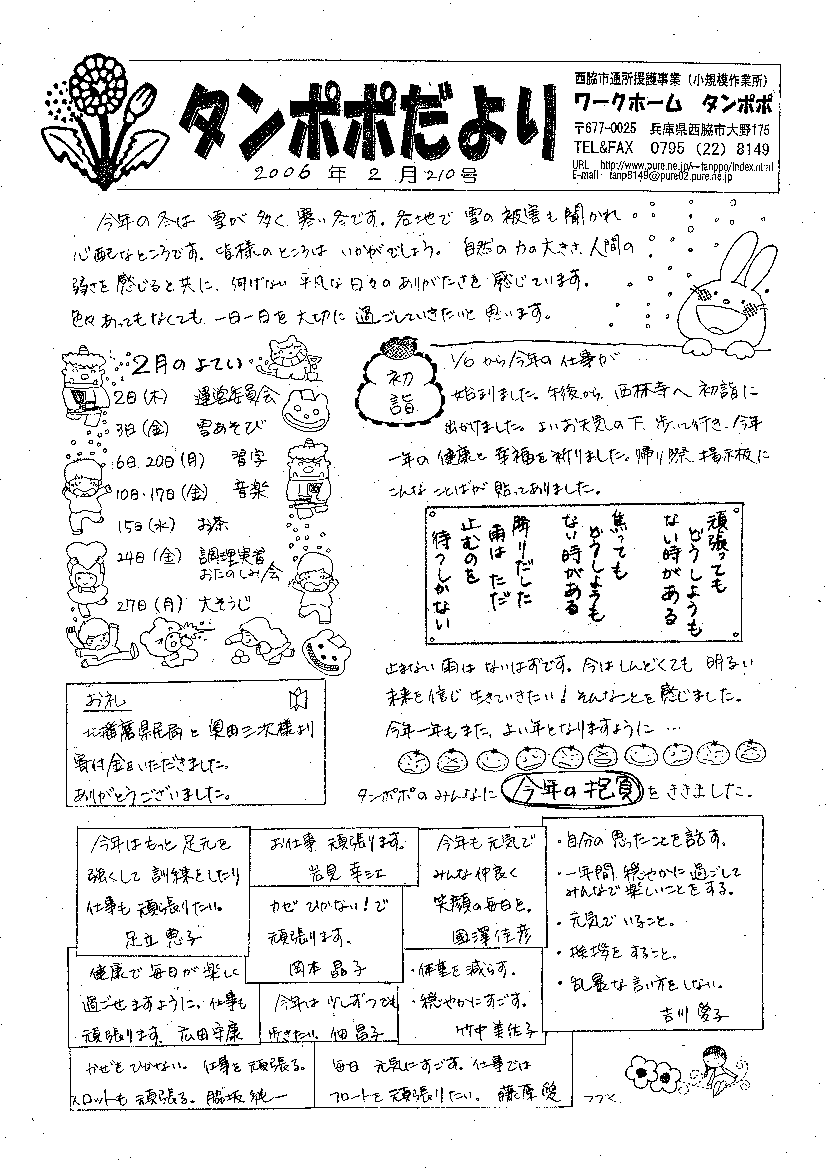 タンポポだより
2006年2月210号
西脇市通所援護事業(小規模作業所)
ワークホーム タンポポ
〒677-0025 兵庫県西脇市大野175
TEL&FAX 0795(22)8149
URL http://www.pure.ne.jp/~tanppo/index.html
E-mail tanp8149@pure02.pure.ne.jp
今年の冬は雪が多く、寒い冬です。各地で雪の被害も聞かれ
心配なところです。皆様のところはいかがでしょう。自然の力の大きさ、人間の
弱さを感じると共に、何げない平凡な日々のありがたさを感じています。
色々あってもなくても、一日一日を大切に過ごしていきたいと思います。
2月のよてい
2日(木) 運営委員会
3日(金) 雪あそび
6日、20日(月) 習字
10日・17日(金) 音楽
15日(水) お茶
24日(金) 調理実習
おたのしみ会
27日(月) 大そうじ
お礼
北播磨県民局と奥田三次様より
寄付金をいただきました。
ありがとうございました。
初詣
1/6から今年の仕事が…
始まりました。午後から、西林寺へ初詣に
出かけました。よいお天気の下、歩いて行き、今年
一年の健康と幸福を祈りました。帰り際、掲示板に
こんなことばが貼ってありました。
頑張っても
どうしようも
ない時がある
焦っても
どうしようも
ない時がある
降りだした
雨はただ
止むのを
待つしかない
止まない雨はないはずです。今はしんどくても明るい
未来を信じ生きていきたい!そんなことを感じました。
今年一年もまた、よい年となりますように…
タンポポのみんなに今年の抱負をききました。
今年はもっと足元を
強くして訓練をしたり
仕事も頑張りたい。
足立恵子
お仕事頑張ります。
岩見幸江
カゼひかない!で
頑張ります。
岡本晶子
今年も元気で
みんな仲良く
笑顔の毎日を。
國澤佳彦
・自分の思ったことを話す。
・一年間、穏やかに過ごして
みんなで楽しいことをする。
・元気でいること。
・挨拶をすること。
・乱暴な言い方をしない。
吉川愛子
健康で毎日が楽しく
過ごせますように。仕事も
頑張ります。広田守康
今年は少しずつでも
歩きたい。佃昌子
・体重を減らす。
・穏やかにすごす。
竹中美佐子
かぜをひかない。仕事を頑張る。
スロットも頑張る。脇坂純一
毎日元気にすごす。仕事では
フロートを頑張りたい。藤原愛
つづく